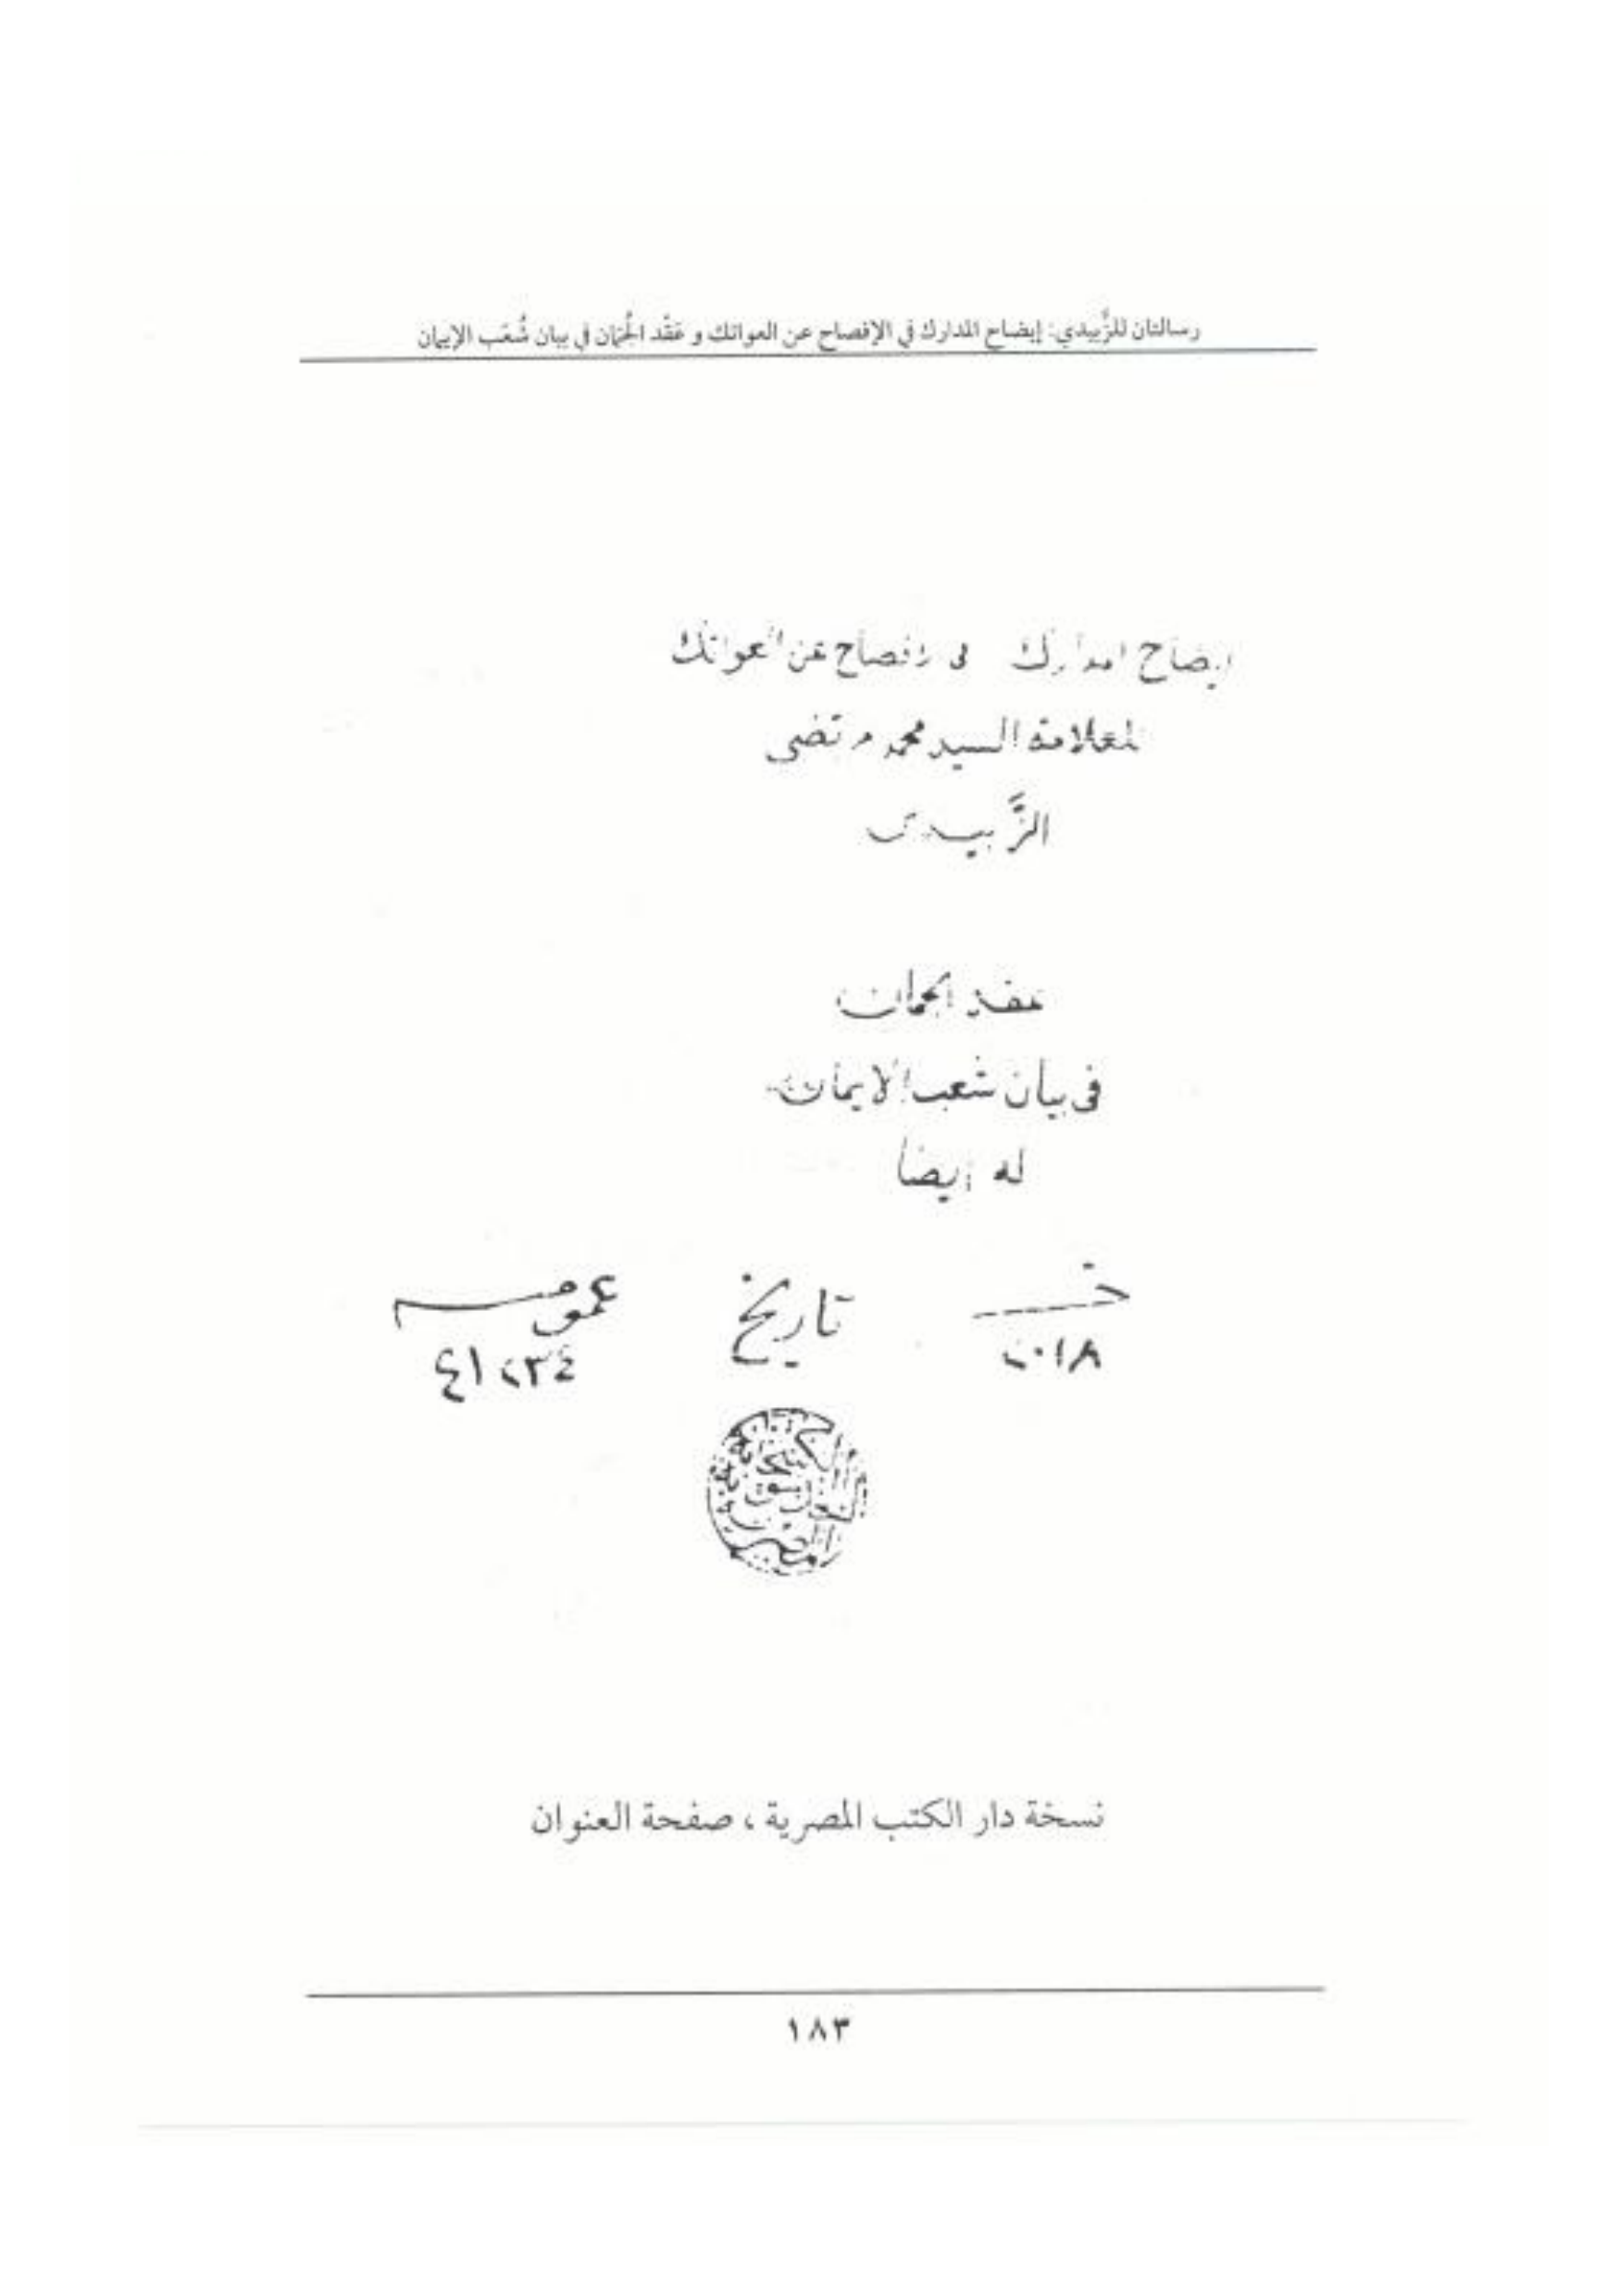 رسالتان للزَّبيدي: إيضاح المدارك في الإفصاح عن العواتك و عَقْد الجُمَان في بيان شُعَب الإيمان
ايضاح المدارك فى الافصاح عن العواتك
للعلامة السيد محمد مرتضى
الزَّبيدى
عقد الجمان
فى بيان شعب الايمان
له ايضا
تاريخ
٢٠١٨
٤١٢٣٤
نسخة دار الكتب المصرية ، صفحة العنوان
١٨٣